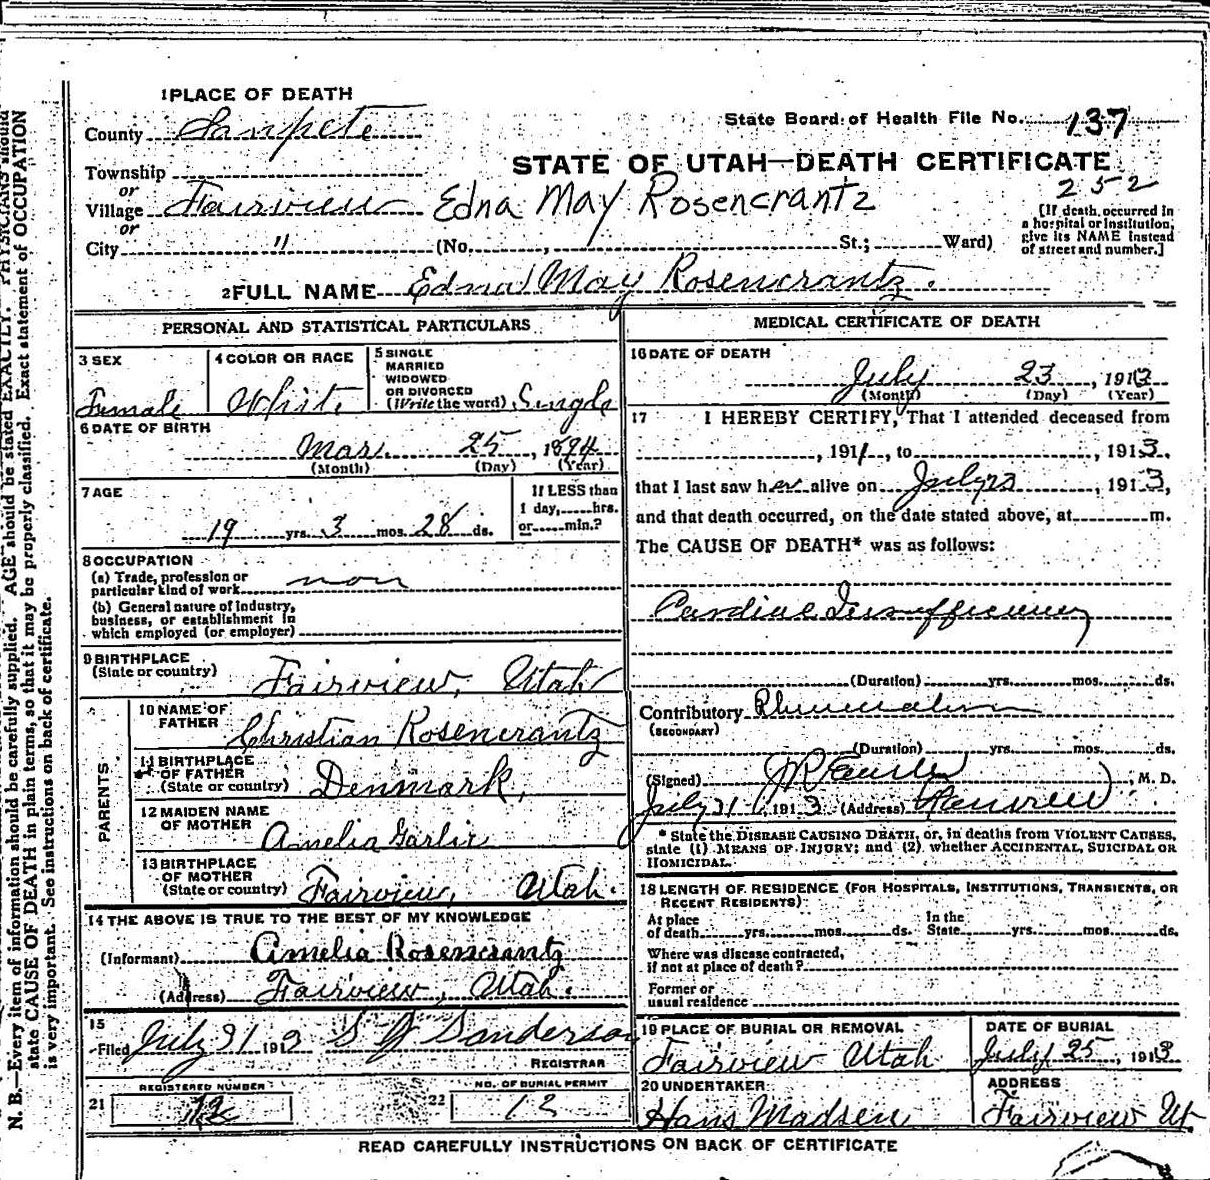 1 PLACE OF DEATH
County Sanpete
State Board of Health File No. 137
STATE OF UTAH—DEATH CERTIFICATE
Township
or
252
Village Fairview Edna May Rosencrantz
or
City " (No. , St.; Ward)
[If death occurred in
a hospital or institution,
give its NAME instead
of street and number.]
2 FULL NAME Edna May Rosencrantz.
PERSONAL AND STATISTICAL PARTICULARS
3 SEX
Female
4 COLOR OR RACE
White
5 SINGLE
MARRIED
WIDOWED
OR DIVORCED
(Write the word) Single
6 DATE OF BIRTH
Mar. 25, 1894
(Month) (Day) (Year)
7 AGE
19 yrs. 3 mos. 28 ds.
If LESS than
1 day, hrs.
or min.?
8 OCCUPATION
(a) Trade, profession or
particular kind of work non
(b) General nature of industry,
business, or establishment in
which employed (or employer)
9 BIRTHPLACE
(State or country) Fairview, Utah
PARENTS
10 NAME OF
FATHER Christian Rosencrantz
11 BIRTHPLACE
OF FATHER
(State or country) Denmark,
12 MAIDEN NAME
OF MOTHER Amelia
13 BIRTHPLACE
OF MOTHER
(State or country) Fairview, Utah.
14 THE ABOVE IS TRUE TO THE BEST OF MY KNOWLEDGE
(Informant) Amelia Rosencrantz
(Address) Fairview, Utah.
15
Filed July 31 1913 Sanderson
REGISTRAR
REGISTERED NUMBER
21
NO. OF BURIAL PERMIT
22 12
MEDICAL CERTIFICATE OF DEATH
16 DATE OF DEATH
July 23, 1913
(Month) (Day) (Year)
17 I HEREBY CERTIFY, That I attended deceased from
, 191 , to , 1913,
that I last saw her alive on July 23, 1913,
and that death occurred, on the date stated above, at m.
The CAUSE OF DEATH* was as follows:
Cardiac Insufficiency
(Duration) yrs. mos. ds.
Contributory Rheumatism
(SECONDARY)
(Duration) yrs. mos. ds.
(Signed) , M. D.
July 31, 1913 (Address) Fairview
* State the DISEASE CAUSING DEATH, or, in deaths from VIOLENT CAUSES,
state (1) MEANS OF INJURY; and (2) whether ACCIDENTAL, SUICIDAL OR
HOMICIDAL.
18 LENGTH OF RESIDENCE (FOR HOSPITALS, INSTITUTIONS, TRANSIENTS, OR
RECENT RESIDENTS)
At place
of death yrs. mos. ds.
In the
State yrs. mos. ds.
Where was disease contracted,
if not at place of death?
Former or
usual residence
19 PLACE OF BURIAL OR REMOVAL
Fairview Utah
DATE OF BURIAL
July 25, 1913
20 UNDERTAKER
Hans Madsen
ADDRESS
Fairview Ut.
READ CAREFULLY INSTRUCTIONS ON BACK OF CERTIFICATE
N. B.—Every item of information should be carefully supplied. AGE should be stated EXACTLY. PHYSICIANS should
state CAUSE OF DEATH in plain terms, so that it may be properly classified. Exact statement of OCCUPATION
is very important. See instructions on back of certificate.